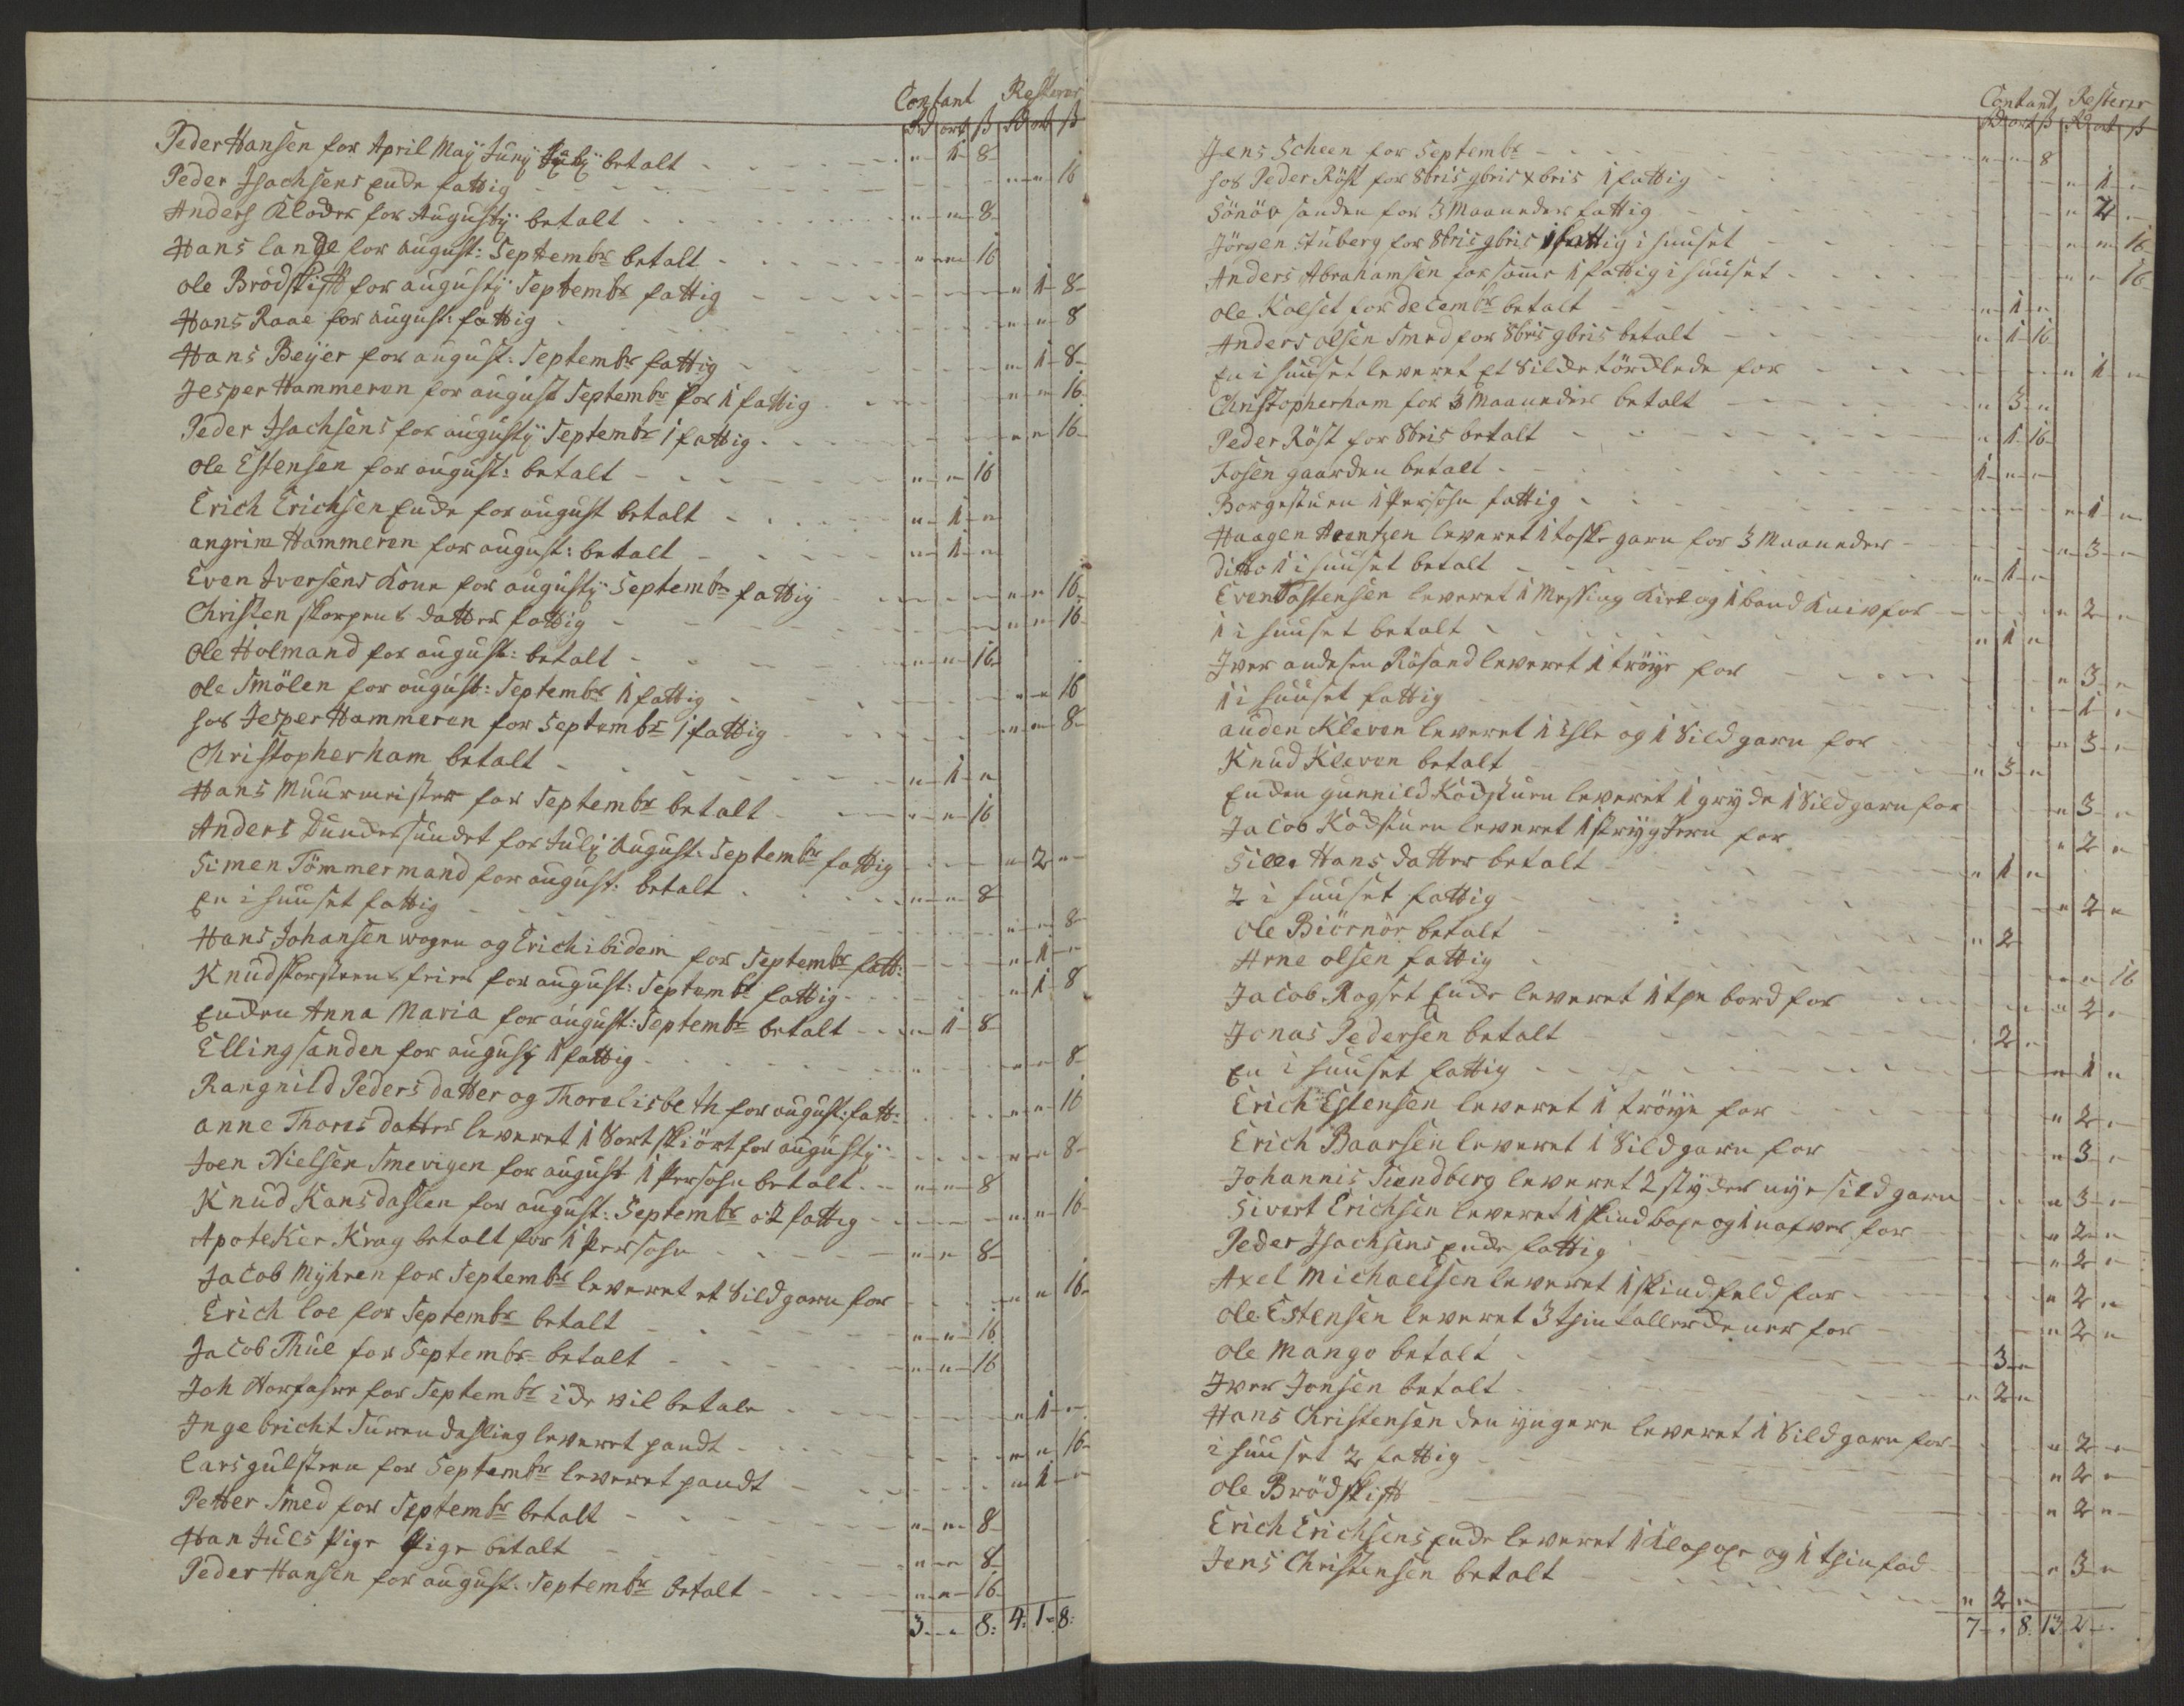 Contant Resterer
Rd ort ß Rd ort ß
Peder Hansen for April Maÿ Junÿ Julÿ betalt - " - 1 - 8
Peder Isachsens Enche fattig - " - " - 16
Anders Kloder for Augustÿ betalt - " - " - 8
Hans Lange for August: Septembr betalt - " - " - 16
Ole Brödskift for augustÿ Septembr fattig - " - 1 - 8
Hans Raae for august: fattig - " - " - 8
Hans Beÿer for august: Septembr fattig - " - 1 - 8
Jesper Hammeren for august Septembr for 1 fattig - " - " - 16
Peder Isachsens for augustÿ Septembr 1 fattig - " - " - 16
Ole Estensen for august: betalt - " - " - 16
Erich Erichsen Enche for august betalt - " - 1 - "
angrim Hammeren for august: betalt - " - 1 - "
Even Iversens Kone for augustÿ Septembr fattig - " - " - 16
Christen skorpens datter fattig - " - " - 16
Ole Holmand for august: betalt - " - " - 16
Ole Smölen for august: Septembr 1 fattig - " - " - 16
hos Jesper Hammeren for Septembr 1 fattig - " - " - 8
Christopher ham betalt - " - 1 - "
Hans Muurmeister for Septembr betalt - " - " - 16
Anders Dundersundet for Julÿ August: Septembr fattig - " - 2 - "
Simen Tömmermand for august: betalt - " - " - 8
En i huuset fattig - " - " - 8
Hans Johansen wogen og Erich ibidem for Septembr fatt: - " - 1 - "
Knud skorsteens feier for august: Septembr fattig - " - 1 - 8
Encken Anna Maria for august: Septembr betalt - " - 1 - 8
Elling sanden for augustÿ 1 fattig - " - " - 8
Rangnild Peders datter og Thorelisbeth for august: fatt: - " - " - 16
anne Thores datter leveret 1 Sort skiört for augustÿ - " - " - 8
Joen Nielsen Smevigen for august 1 Persohn betalt - " - " - 8
Knud Kansdahlen for august: Septembr a 2 fattig - " - " - 16
Apoteker Krag betalt for 1 Persohn - " - " - 8
Jacob Mÿhren for Septembr leveret et Sildgarn for - " - " - 16
Erich loe for Septembr betalt - " - " - 16
Jacob Thue for Septembr betalt - " - " - 16
Joh Norfahre for Septembr ide vil betale - " - 1 - "
Ingebricht Surendahling leveret pandt - " - " - 16
Lars gulsteen for Septembr leveret pandt - " - 1 - "
Petter Smed for Septembr betalt - " - " - 8
Han Juels Pige Pige betalt - " - " - 8
Peder Hansen for august: Septembr betalt - " - " - 16
3 - " - 8: 4: 1 - 8:
Contant Resterer
Rd ort ß Rd ort ß
Jens Scheen for Septembr - " - " - 8
hos Peder Röst for 8bris 9bris Xbris 1 fattig - " - 1 - "
Sönöv sanden for 3 Maaneder fattig - " - 2 - "
Jörgen Stuberg for 8bris 9bris 1 fattig i huuset - " - " - 16
Anders Abrahamsen for same 1 fattig i huuset - " - " - 16
Ole Kolset for decembr betalt - " - 1 - "
Anders olsen Smed for 8bris 9bris betalt - " - 1 - 16
En i huuset leveret Et Silde for - " - 1 - "
Christopher ham for 3 Maaneder betalt - " - 3 - "
Peder Röst for 8bris betalt - " - 1 - 16
Fosen gaarden betalt - 1 - " - "
Borgestuen 1 Persohn fattig - " - 1 - "
Haagen Arentzen leveret 1 toske garn for 3 Maaneder - " - 3 - "
ditto 1 i huuset betalt - " - 1 - "
Even Tostensen leveret 1 Messing Kiel og 1 baand Kniv for - " - 2 - "
1 i huuset betalt - " - 1 - "
Iver andesen Rösand leveret 1 tröye for - " - 3 - "
1 i huuset fattig - 1 - "
auden Kleven leveret 1 Esle og 1 Sildgarn for - " - 3 - "
Knud Kleven betalt - " - 3 - "
Encken gunnild Kodstuen leveret 1 gryde 1 Sildgarn for - " - 3 - "
Jacob Kodstuen leveret 1 strygJern for - " - 2 - "
Sille Hans datter betalt - " - 1 - "
2 i huuset fattig - " - 2 - "
Ole Biörnör betalt - " - 2
Arne olsen fattig - " - " - 16
Jacob Rogset Enche leveret 1 bord for - " - 2 - "
Jonas Pedersen betalt - 2 - "
En i huuset fattig - " - 1 - "
Erich Estensen leveret 1 tröye for - " - 2 - "
Erich Baarsen leveret 1 Sildgarn for - " - 3 - "
Johannis Sundberg leveret 2 stycker nye sildgarn - " - 3 - "
Sivert Erichsen leveret 1 skind og 1 nafver for - " - 2 - "
Peder Isachsens Enche fattig - " - 2 - "
Axel Michaelsen leveret 1 skindfeld for - " - 2 - "
Ole Estensen leveret 3 tin tallerckener for - " - 2 - "
Ole Mango betalt - 3 - "
Iver Jonsen betalt - " - 2 - "
Hans Christensen den yngere leveret 1 Sildgarn for - " - 2 - "
i huuset 2 fattig - " - 2 - "
Ole Brödskift - " - 2 - "
Erich Erichsens Enche leveret 1 og 1 tinfad - " - 3 - "
Jens Christensen betalt - " - 2 - "
7 - " - 8: 13 2 - "